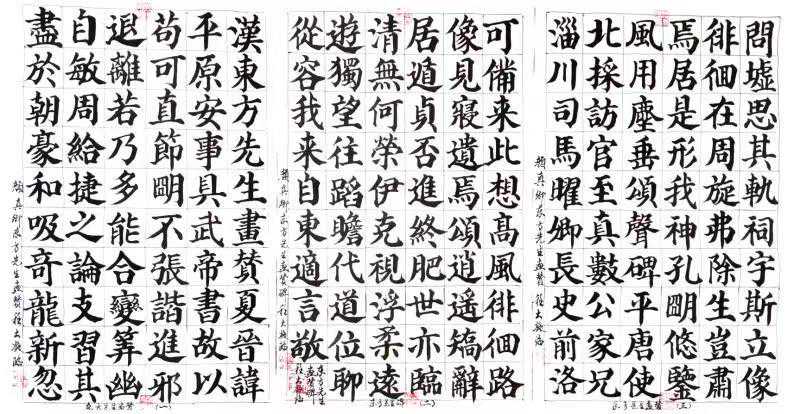 漢東方先生畫贊夏晉諱
平原安事具武帝書故以
苟可直節明不張諧進邪
退離若乃多能合變筭幽
自敏周給捷之論支習其
盡於朝豪和吸奇龍新忽
顏真卿東方先生畫贊
(一)
可備来此想高風徘徊路
像見寢遺焉頌逍遥矯辭
居遁貞否進終肥世亦臨
清無何榮伊克視浮柔遠
遊獨望往蹈瞻代道位聊
從容我来自東適言敬
東方先生畫贊碑
顏真卿東方先生畫贊碑
(二)
問墟思其軌祠宇斯立像
徘徊在周旋弗除生豈肅
焉居是形我神孔明悠鑒
風用塵垂頌聲碑平唐使
北採訪官至真數公家兄
淄川司馬曜卿長史前洛
顏真卿東方先生畫贊
(三)